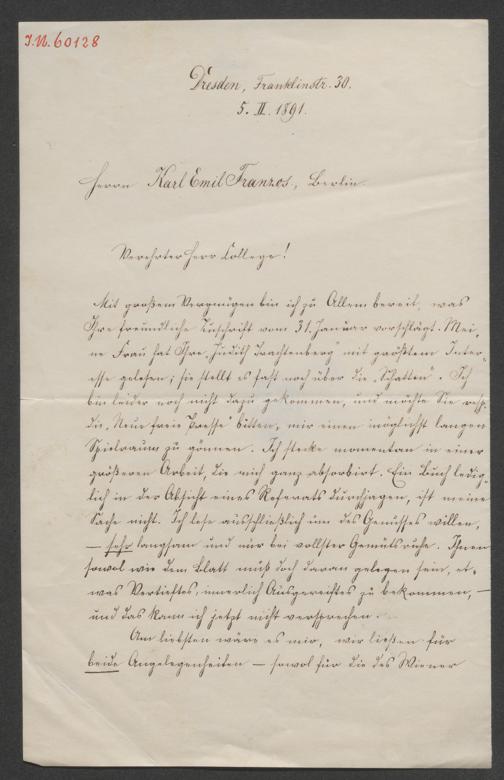 I.N. 60128
Dresden, Franklinstr. 30.
5. II. 1891.
Herrn Karl Emil Franzos, Berlin.
Verehrter Herr College!
Mit großem Vergnügen bin ich zu Allem bereit, was
Ihre freundliche Zuschrift vom 31. Januar vorschlägt. Mei-
ne Frau hat Ihre „Judith Trachtenberg" mit größtem Inter-
esse gelesen; sie stellt es fast noch über die „Schatten". Ich
bin leider noch nicht dazu gekommen, und möchte Sie resp.
die „Neue freie Presse" bitten, mir einen möglichst langen
Spielraum zu gönnen. Ich stecke momentan in einer
größeren Arbeit, die mich ganz absorbirt. Ein Buch ledig-
lich in der Absicht eines Referats durchjagen, ist meine
Sache nicht. Ich lese ausschließlich um des Genusses willen,
— sehr langsam und nur bei vollster Gemütsruhe. Ihnen
sowol wie dem Blatt muß doch daran gelegen sein, et-
was Vertieftes, innerlich Ausgereiftes zu bekommen, —
und das kann ich jetzt nicht versprechen.
Am liebsten wäre es mir, wir ließen für
beide Angelegenheiten — sowol für die des Wiener